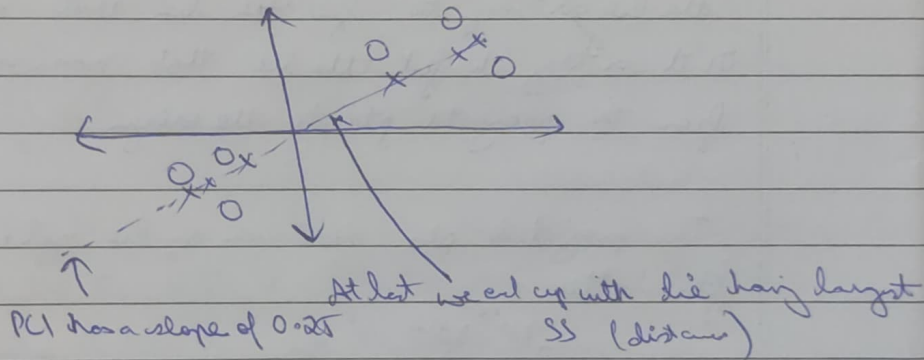 At last we end up with line having largest
SS (distance)
PC1 has a slope of 0.25